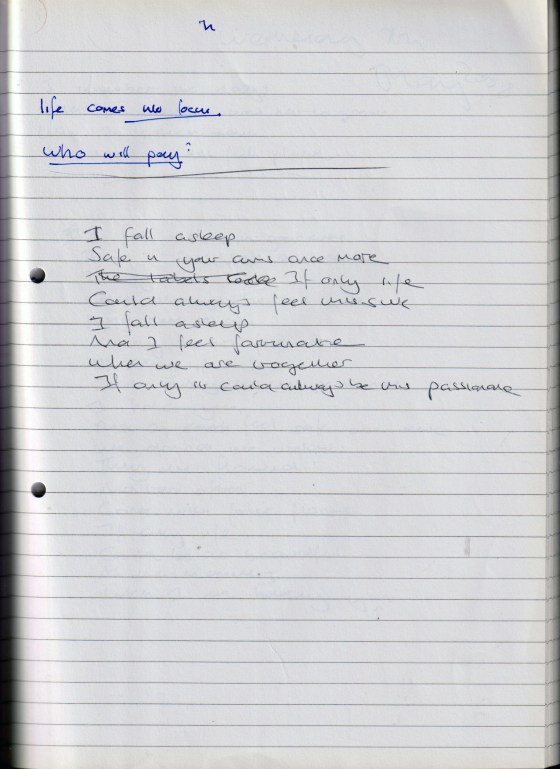 life comes into focus.
Who will pay?
I fall asleep
Safe in your arms once more
The labels If only life
Could always feel this
I fall asleep
And I feel fortunate
When we are together
If only it could always be this passionate